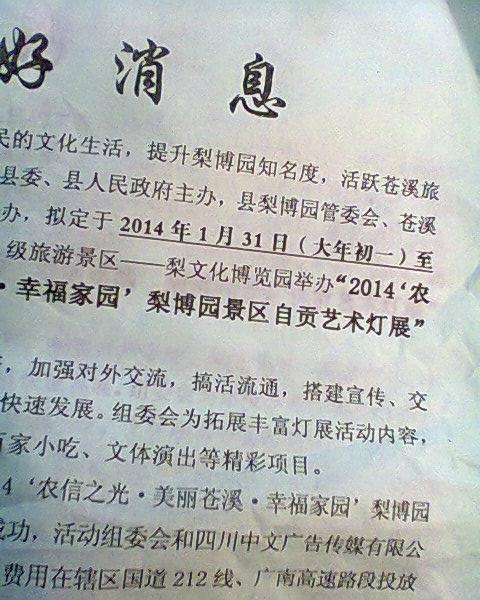 好消息
民的文化生活，提升梨博园知名度，活跃苍溪旅
县委、县人民政府主办，县梨博园管委会、苍溪
办，拟定于2014年1月31日（大年初一）至
级旅游景区——梨文化博览园举办“2014‘农
·幸福家园’梨博园景区自贡艺术灯展”
，加强对外交流，搞活流通，搭建宣传、交
快速发展。组委会为拓展丰富灯展活动内容，
百家小吃、文体演出等精彩项目。
4‘农信之光·美丽苍溪·幸福家园’梨博园
成功，活动组委会和四川中文广告传媒有限公
费用在辖区国道212线、广南高速路段投放